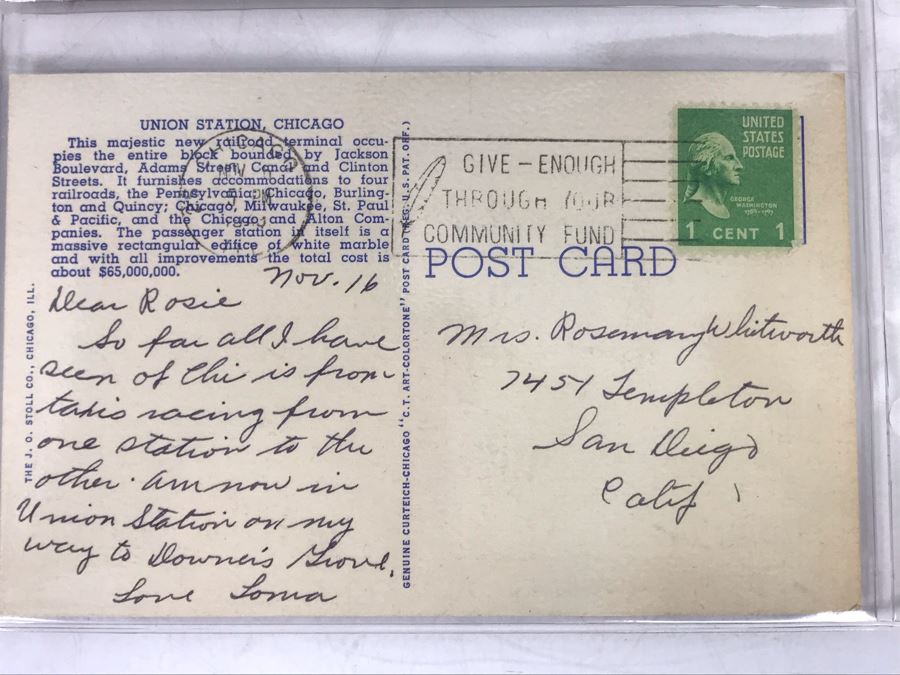 UNION STATION, CHICAGO
This majestic new railroad terminal occu-
pies the entire block bounded by Jackson
Boulevard, Adams Street, Canal and Clinton
Streets. It furnishes accommodations to four
railroads, the Pennsylvania; Chicago, Burling-
ton and Quincy; Chicago, Milwaukee, St. Paul
& Pacific, and the Chicago and Alton Com-
panies. The passenger station in itself is a
massive rectangular edifice of white marble
and with all improvements the total cost is
about $65,000,000.
Nov. 16
Dear Rosie
So far all I have
seen of Chi is from
taxis racing from
one station to the
other. Am now in
Union Station on my
way to Downer's Grove.
Love Loma
THE J. O. STOLL CO., CHICAGO, ILL.
GENUINE CURTEICH-CHICAGO "C.T. ART-COLORTONE" POST CARD (REG. U.S. PAT. OFF.)
CHICAGO
NOV
GIVE - ENOUGH
THROUGH YOUR
COMMUNITY FUND
UNITED
STATES
POSTAGE
GEORGE
WASHINGTON
1 CENT 1
POST CARD
Mrs. Rosemary Whitworth
7451 Templeton
San Diego
Calif